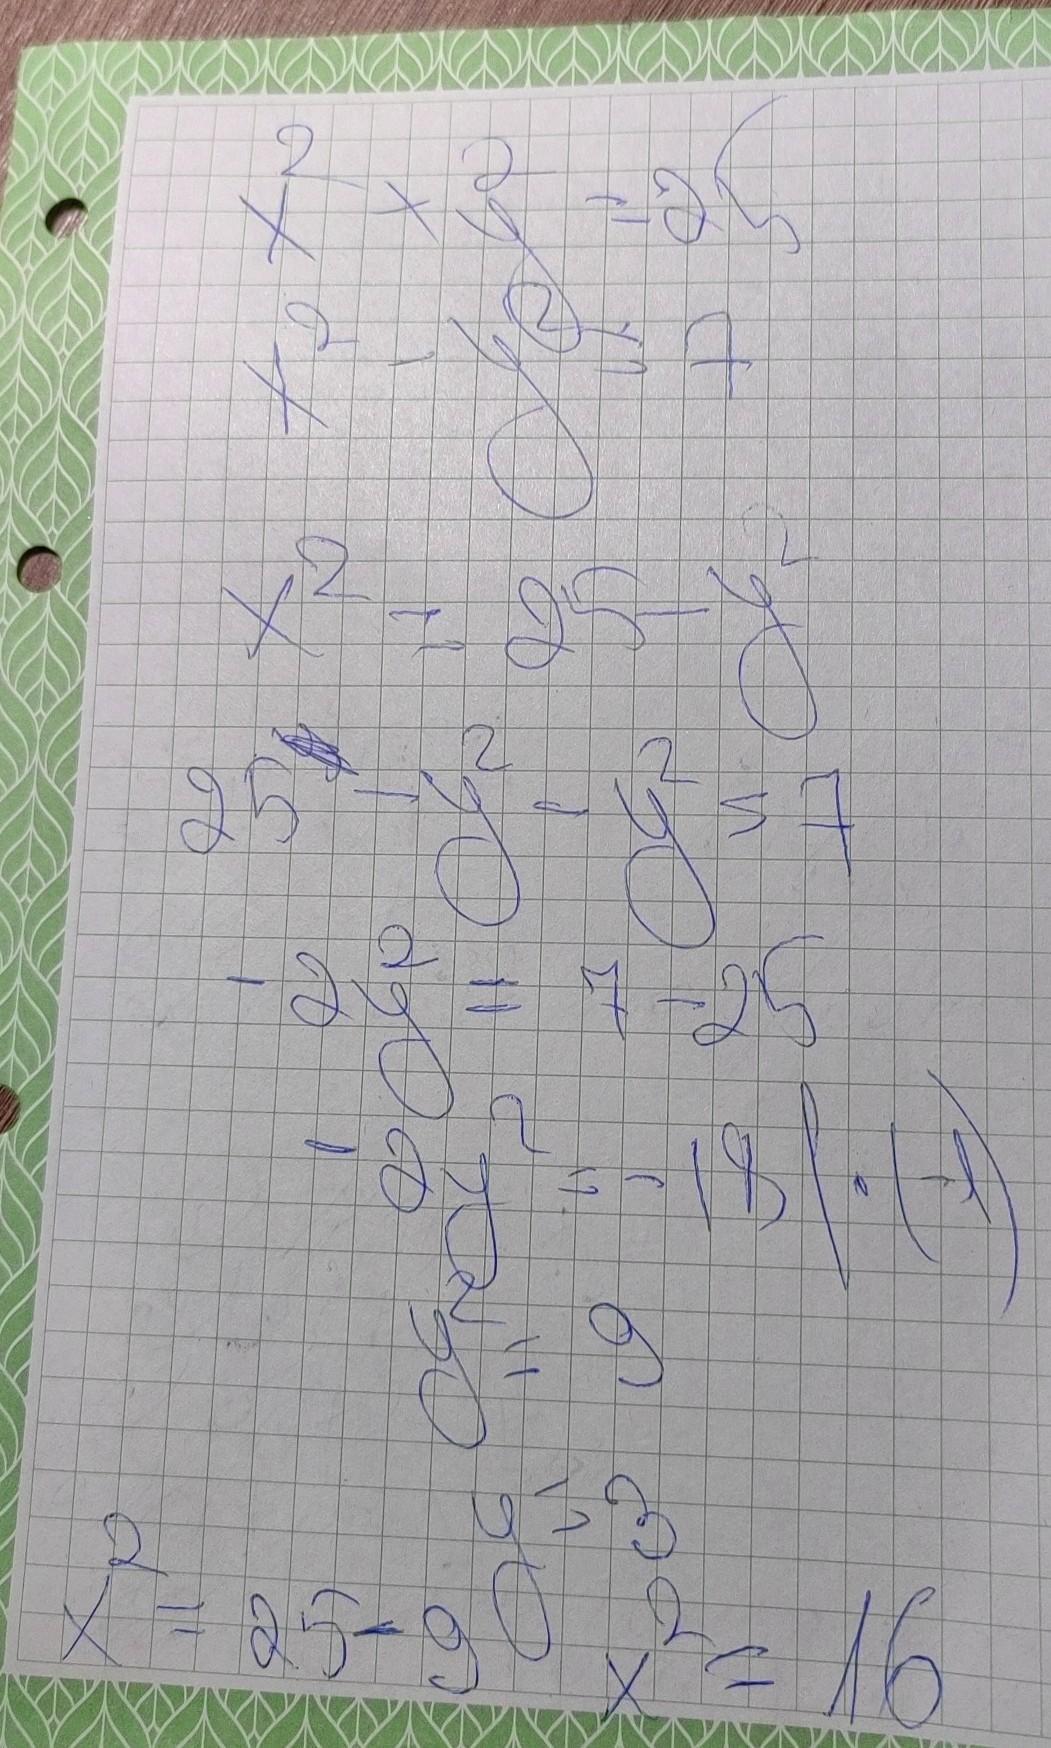 x² + y² = 25
x² - y² = 7
x² = 25 - y²
25 - y² - y² = 7
-2y² = 7 - 25
-2y² = -18 | · (-1)
y² = 9
y = 3
x² = 25 - 9 x² = 16